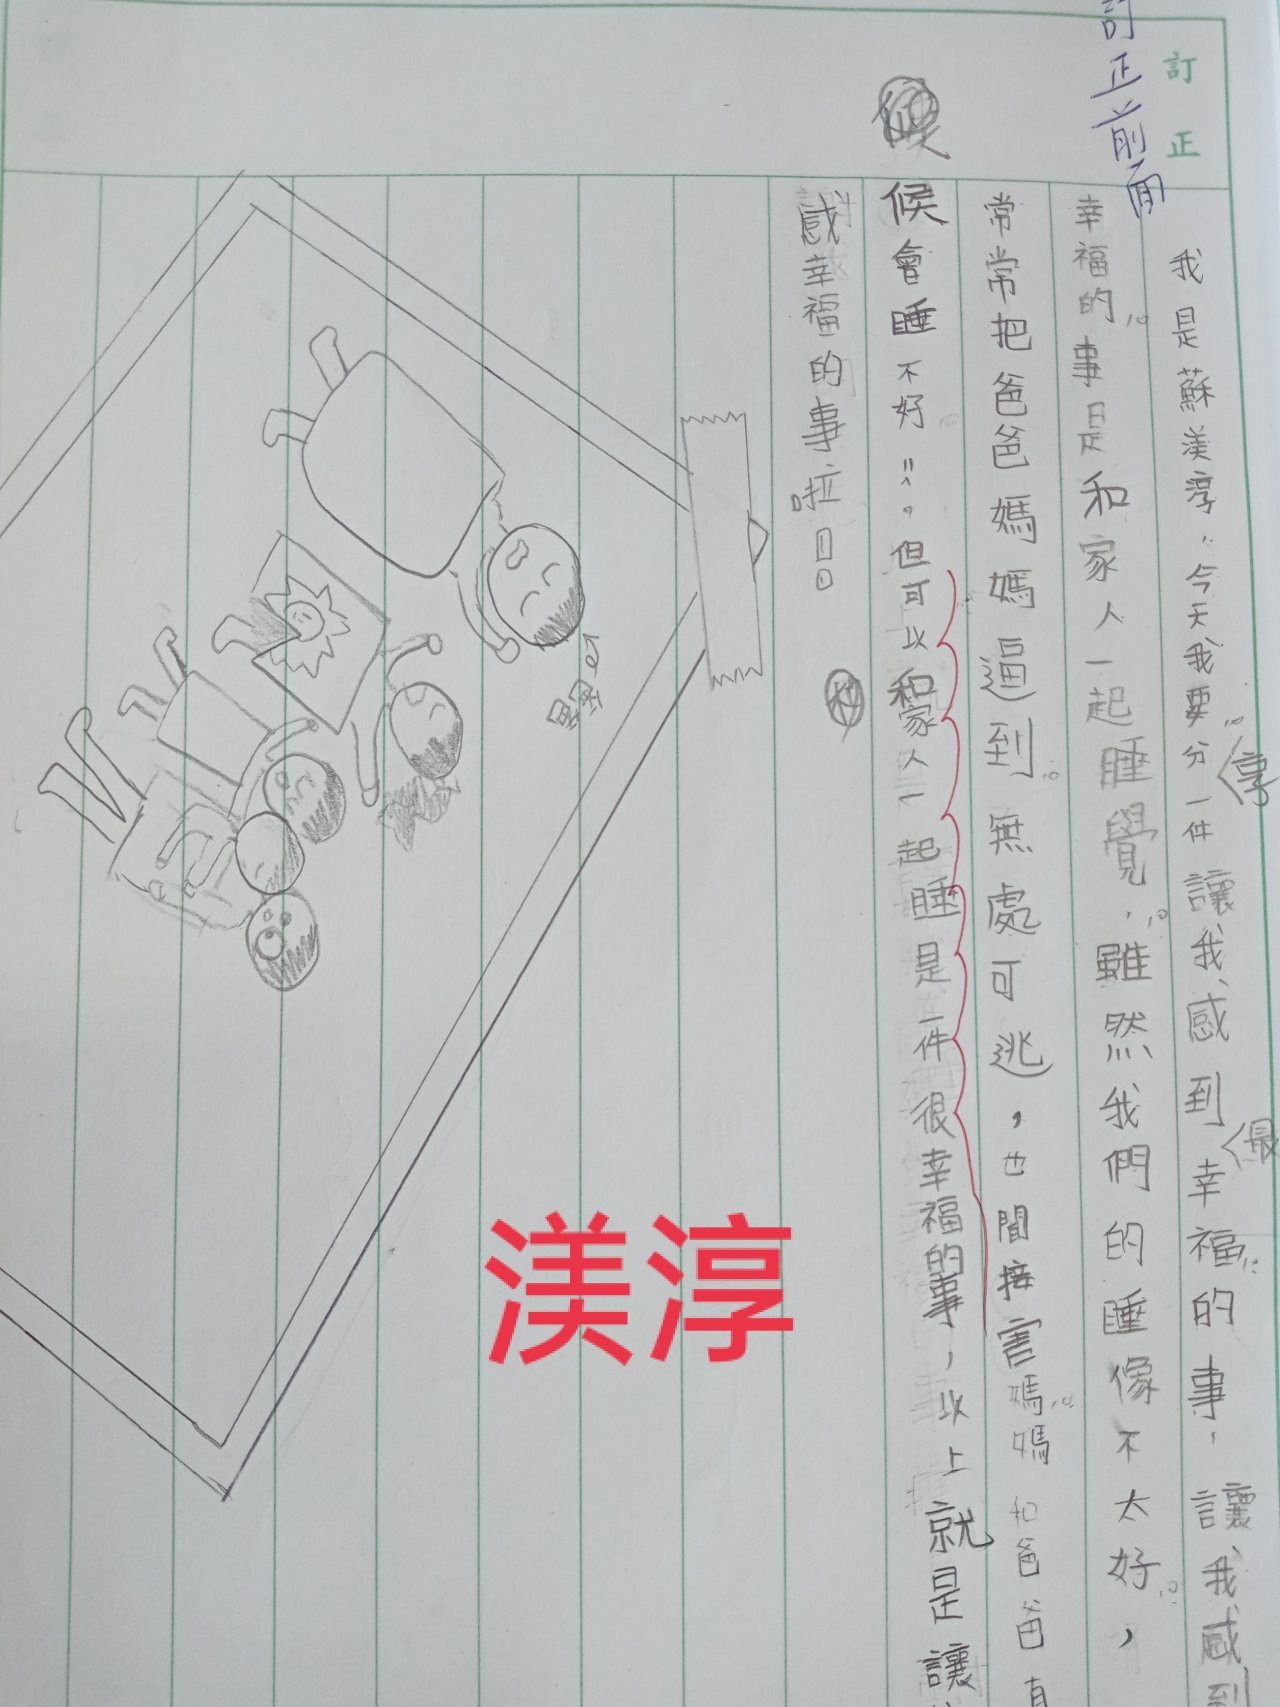 訂正
訂正前面
我是蘇渼淳，今天我要分享一件讓我感到最幸福的事，讓我感到
幸福的事是和家人一起睡覺，雖然我們的睡像不太好，
常常把爸爸媽媽逼到無處可逃，也間接害媽媽和爸爸有
候
候會睡不好，但可以和家人一起睡是一件很幸福的事，以上就是讓
感幸福的事啦!!
渼淳